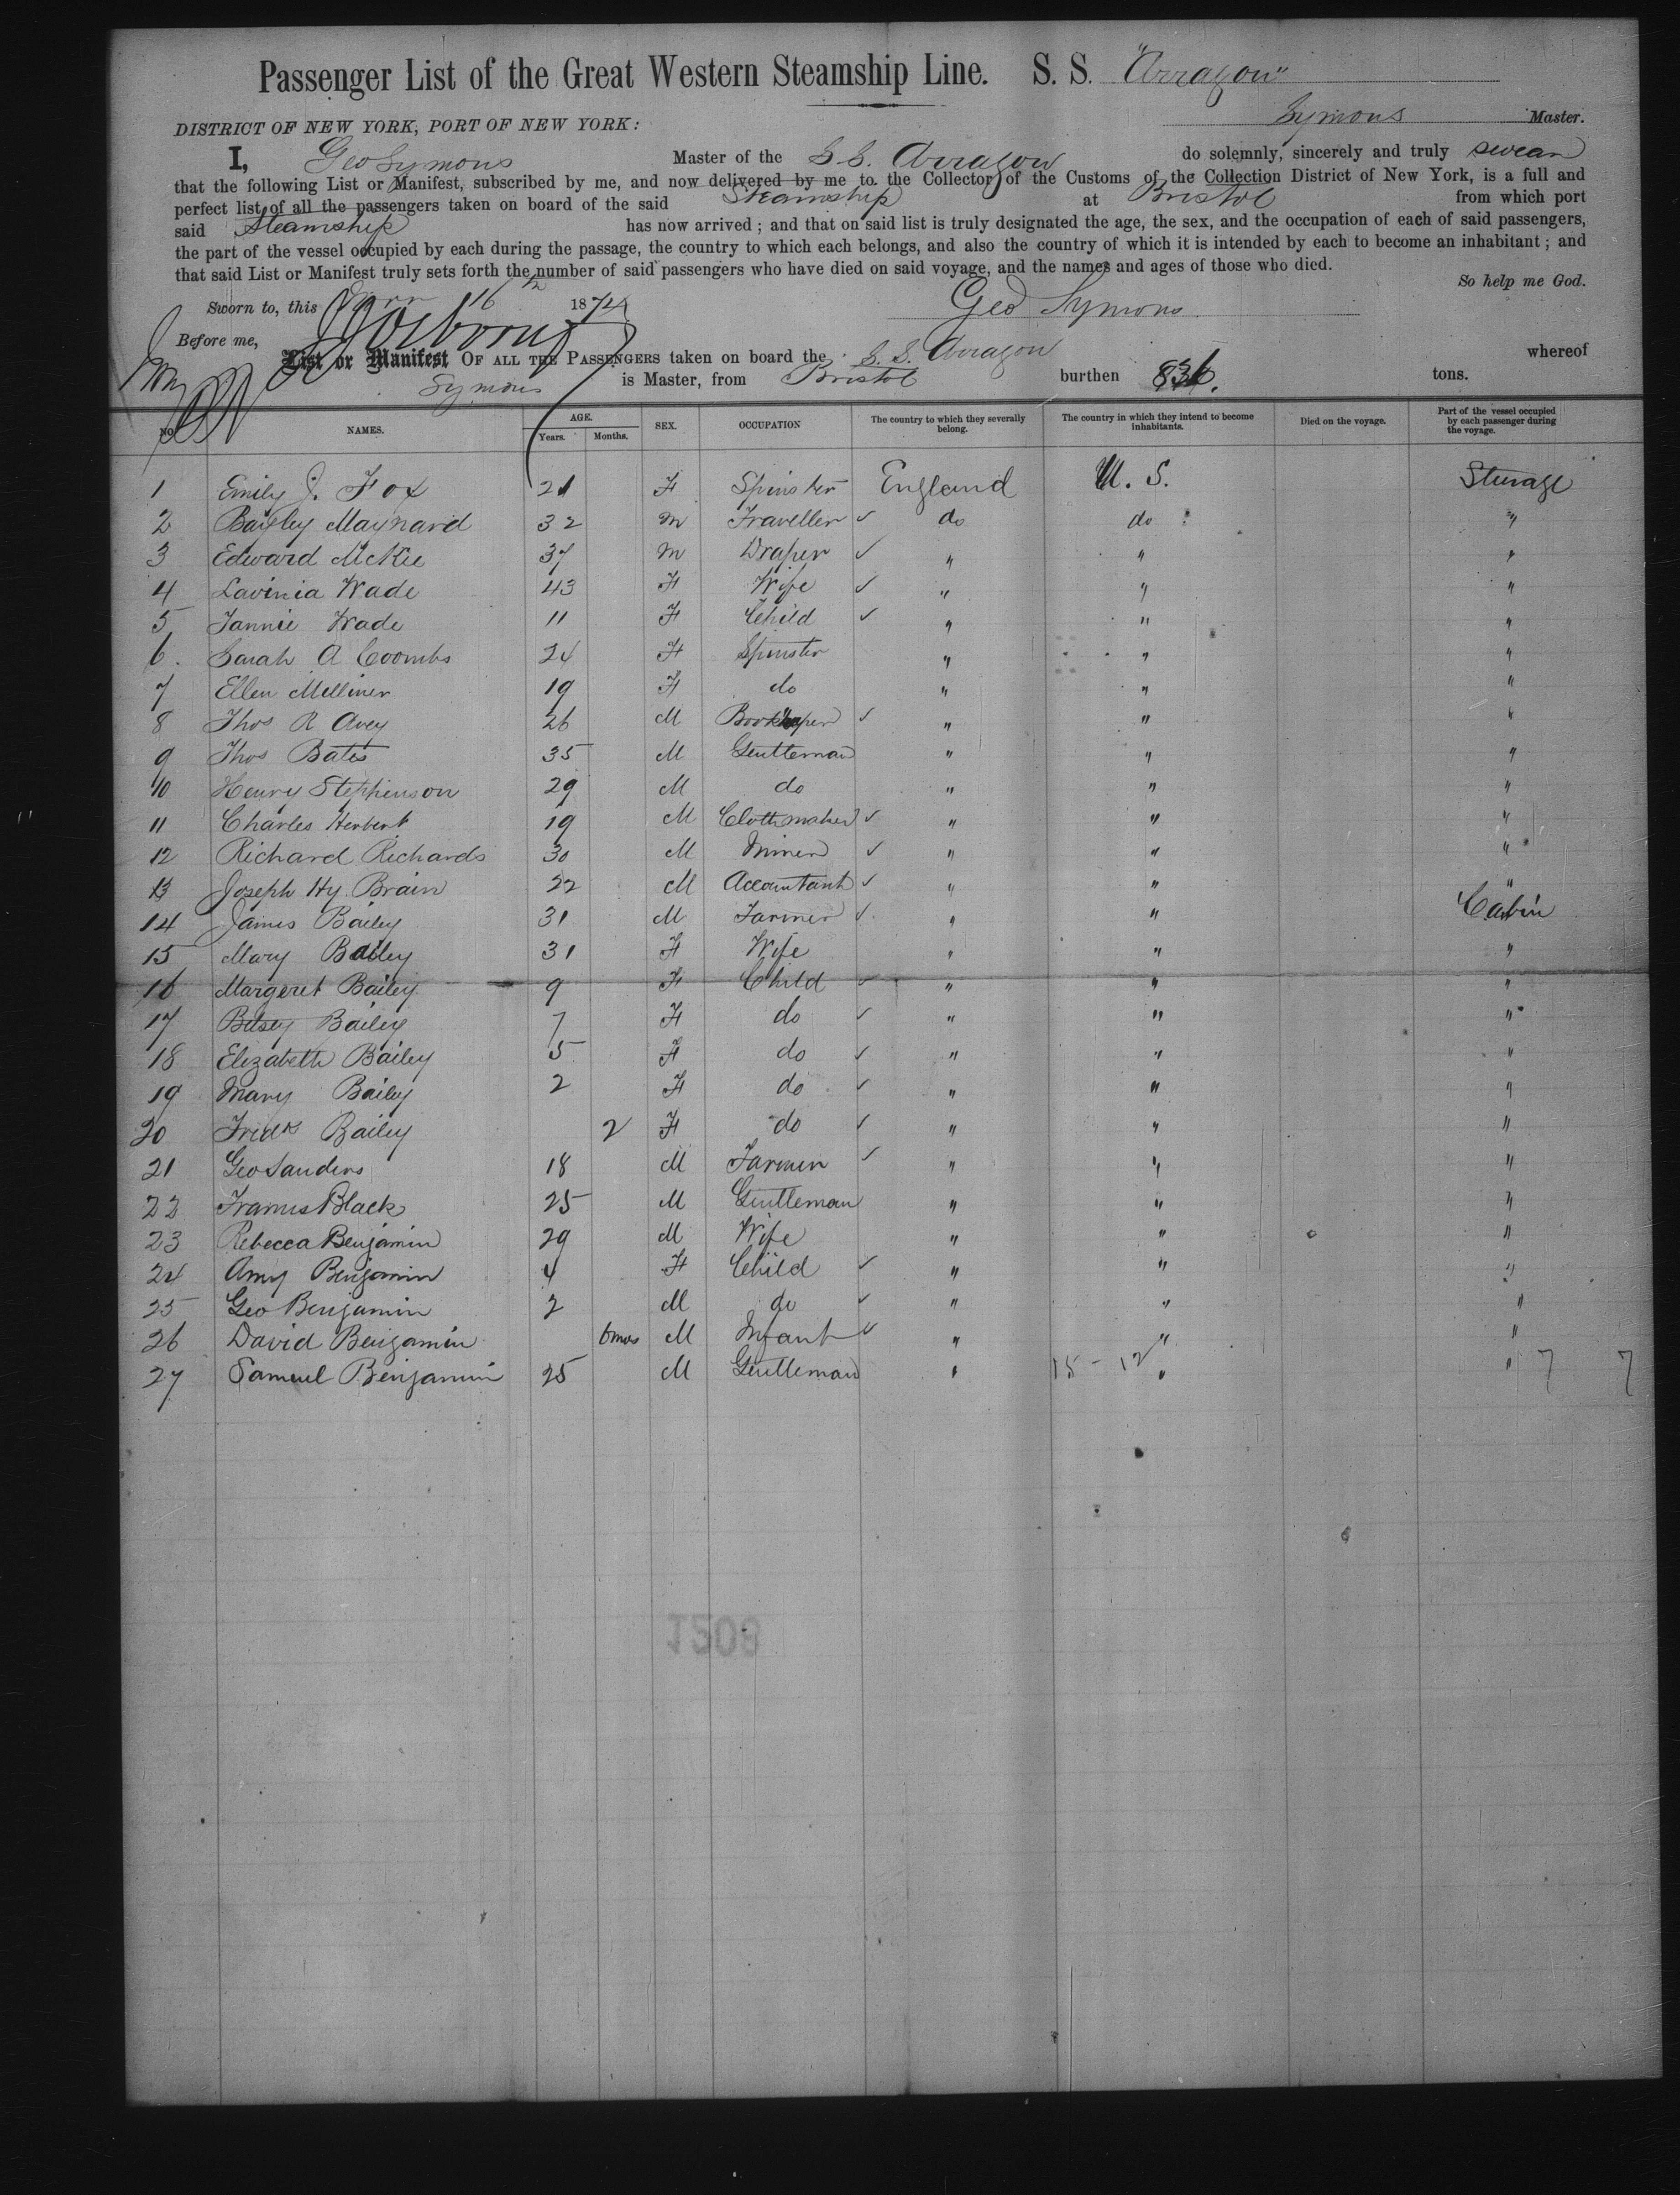 Passenger List of the Great Western Steamship Line. S. S. "Arragon"
Symons Master.
DISTRICT OF NEW YORK, PORT OF NEW YORK:
I, Geo Symons Master of the S.S. Arragon do solemnly, sincerely and truly swear
that the following List or Manifest, subscribed by me, and now delivered by me to the Collector of the Customs of the Collection District of New York, is a full and
perfect list of all the passengers taken on board of the said Steamship at Bristol from which port
said Steamship has now arrived; and that on said list is truly designated the age, the sex, and the occupation of each of said passengers,
the part of the vessel occupied by each during the passage, the country to which each belongs, and also the country of which it is intended by each to become an inhabitant; and
that said List or Manifest truly sets forth the number of said passengers who have died on said voyage, and the names and ages of those who died.
So help me God.
Sworn to, this 16 187 Geo Symons
Before me,
List or Manifest OF ALL THE PASSENGERS taken on board the S.S. Arragon whereof
Symons is Master, from Bristol burthen 836. tons.
NO. NAMES. AGE. Years. Months. SEX. OCCUPATION The country to which they severally belong. The country in which they intend to become inhabitants. Died on the voyage. Part of the vessel occupied by each passenger during the voyage.
1 Emily J. Fox 21 F Spinster England U. S. Sturage
2 Maynard 32 m Traveller ✓ do do "
3 Edward McKie 37 m Draper ✓ " " "
4 Lavinia Wade 43 F Wife ✓ " " "
5 Fannie Wade 11 F Child ✓ " " "
6. Sarah A Coombs 24 F Spinster " " "
7 Ellen Milliner 19 F do " " "
8 Thos R Avey 26 M ✓ " " "
9 Thos Bates 35 M Gentleman " " "
10 Henry Stephenson 29 M do " " "
11 Charles Herbert 19 M Clothmaker ✓ " " "
12 Richard Richards 30 M Miner ✓ " " "
13 Joseph Hy. Brain 22 M Accountant ✓ " " "
14 James Bailey 31 M Farmer ✓ " " Cabin
15 Mary Bailey 31 F Wife " " "
16 Margeret Bailey 9 F Child ✓ " " "
17 Betsey Bailey 7 F do ✓ " " "
18 Elizabeth Bailey 5 F do ✓ " " "
19 Mary Bailey 2 F do ✓ " " "
20 Fredk Bailey 2 F do ✓ " " "
21 Geo Sanders 18 M Farmer ✓ " " "
22 Francis Black 25 M Gentleman " " "
23 Rebecca Benjamin 29 M Wife " " "
24 Amy Benjamin 4 F Child ✓ " " "
25 Geo Benjamin 2 M do ✓ " " "
26 David Benjamin 6mos M Infant ✓ " " "
27 Samuel Benjamin 25 M Gentleman " 15 - 12 " " 7 7
1508